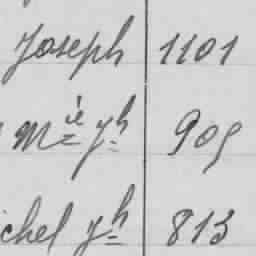 Joseph 1101
Mie Jh 909
chel Jh 813